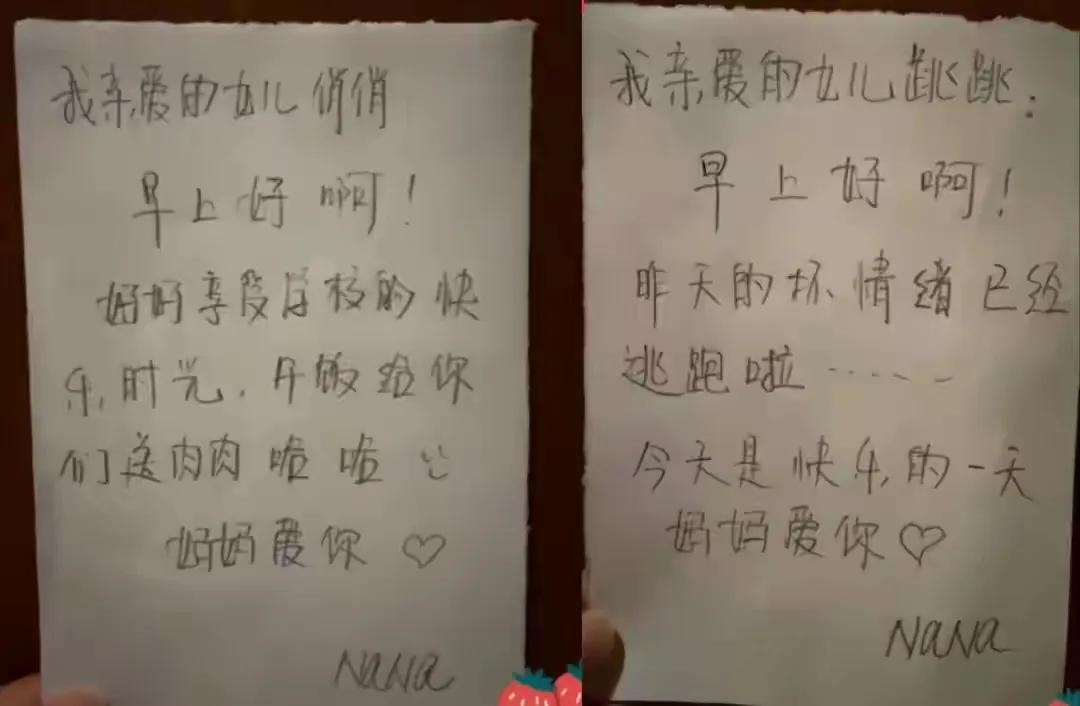 我亲爱的女儿俏俏
早上好啊!
好好享受学校的快
乐时光,午饭给你
们送肉肉啦啦
妈妈爱你♡
NaNa
我亲爱的女儿跳跳:
早上好啊!
昨天的坏情绪已经
逃跑啦……
今天是快乐的一天
妈妈爱你♡
NaNa